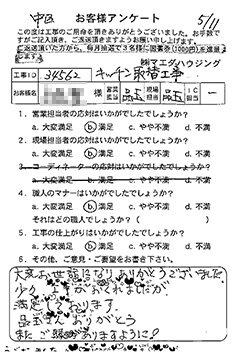 中区 お客様アンケート 5/11
この度は工事のご用命を頂きありがとうございました。お手数で
すがご記入頂き、ご返送頂きますようお願い申し上げます。
ご返送頂いた方から、毎月抽選で3名様に図書券(1000円)を進呈
㈱マエダハウジング
工事ID 34562 キッチン取替工事
様 営業担当 現場担当 品玉 IC担当 ー
1. 営業担当者の応対はいかがでしたでしょうか?
a. 大変満足 b. 満足 c. やや不満 d. 不満
2. 現場担当者の応対はいかがでしたでしょうか?
a. 大変満足 b. 満足 c. やや不満 d. 不満
3. コーディネーターの応対はいかがでしたでしょうか?
a. 大変満足 b. 満足 c. やや不満 d. 不満
4. 職人のマナーはいかがでしたでしょうか?
a. 大変満足 b. 満足 c. やや不満 d. 不満
それはどの職人でしょうか?( )
5. 工事の仕上がりはいかがでしたでしょうか?
a. 大変満足 b. 満足 c. やや不満 d. 不満
6. その他、ご意見・ご要望をお書き下さい。
大変お世話になりありがとうございました
少々 工事がおくれましたが
満足しております。
品玉さん ありがとう
またご縁がありますように!